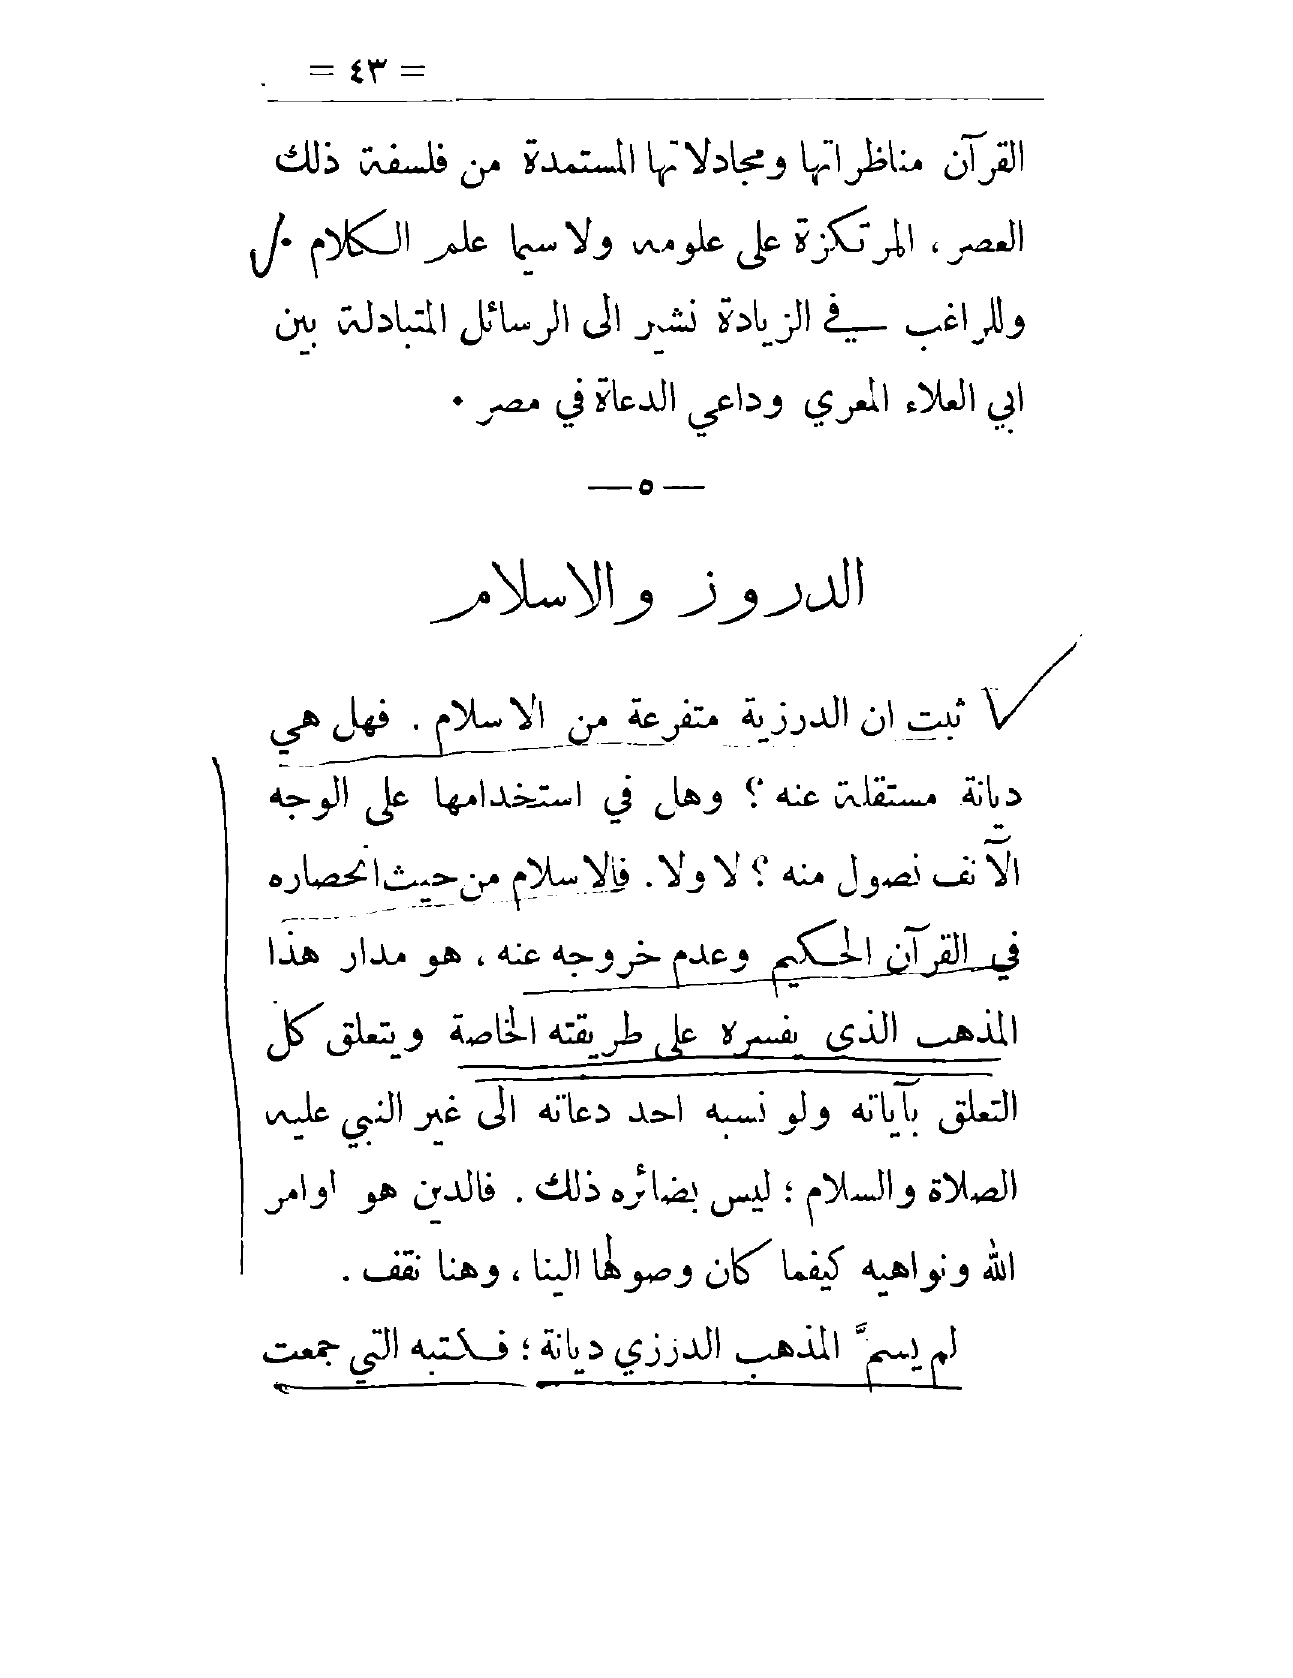 = ٤٣ =
القرآن مناظراتها ومجادلاتها المستمدة من فلسفة ذلك
العصر ، المرتكزة على علومه ولا سيما علم الكلام .
وللراغب في الزيادة نشير الى الرسائل المتبادلة بين
ابي العلاء المعري وداعي الدعاة في مصر .
— ٥ —
الدروز والاسلام
ثبت ان الدرزية متفرعة من الاسلام . فهل هي
ديانة مستقلة عنه ؟ وهل في استخدامها على الوجه
الآنف نصول منه ؟ لا ولا . فالاسلام من حيث انحصاره
في القرآن الحكيم وعدم خروجه عنه ، هو مدار هذا
المذهب الذي يفسره على طريقته الخاصة ويتعلق كل
التعلق بآياته ولو نسبه احد دعاته الى غير النبي عليه
الصلاة والسلام ؛ ليس بضائره ذلك . فالدين هو اوامر
الله ونواهيه كيفما كان وصولها الينا ، وهنا نقف .
لم يسمَّ المذهب الدرزي ديانة ؛ فكتبه التي جمعت